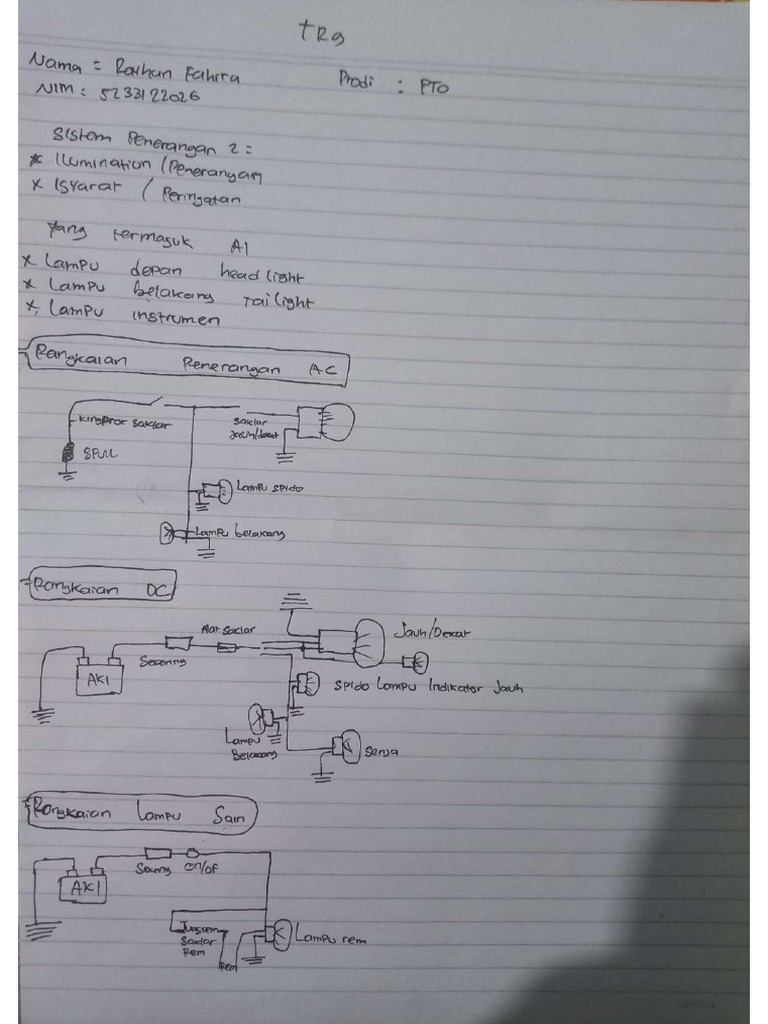 TRg
Nama = Raihan Fahira Prodi : PTO
NIM : 5233122026
Sistem Penerangan 2 =
* Ilumination / Penerangan
* Isyarat / Peringatan
Yang termasuk A1
* Lampu depan head light
* Lampu belakang tailight
* Lampu instrumen
Rangkaian Penerangan AC
saklar
saklar
Jauh/dekat
SPUL
Lampu spido
Lampu belakang
Rangkaian DC
Alat Saklar
Jauh/Dekat
Secering
AKI
SPido Lampu Indikator Jauh
Lampu
Belakang
Senja
Rangkaian Lampu Sain
Secering on/of
AKI
Saklar
Rem
Rem
Lampu rem